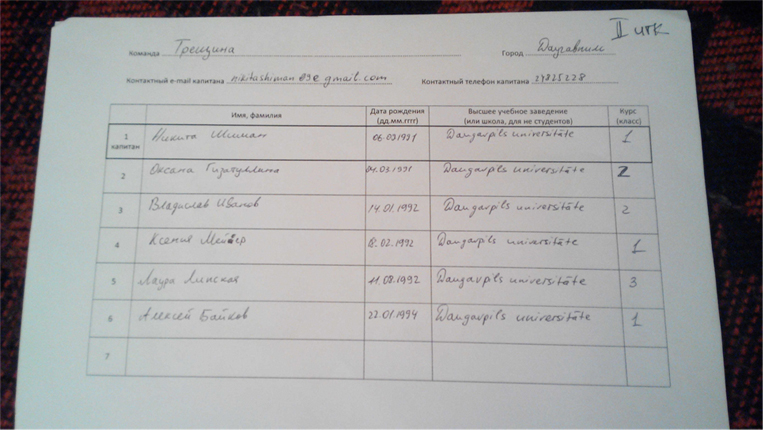 II игк
Команда Трещина Город Даугавпилс
Контактный e-mail капитана nikitashiman09@gmail.com Контактный телефон капитана 27825228
Имя, фамилия Дата рождения (дд.мм.гггг) Высшее учебное заведение (или школа, для не студентов) Курс (класс)
1 капитан Никита Шиман 06.03.1991 Daugavpils universitāte 1
2 Оксана Гизатуллина 01.03.1991 Daugavpils universitāte 2
3 Владислав Иванов 14.01.1992 Daugavpils universitāte 2
4 Ксения Мейер 8.02.1992 Daugavpils universitāte 1
5 Лаура Линская 11.08.1992 Daugavpils universitāte 3
6 Алексей Байков 22.01.1994 Daugavpils universitāte 1
7